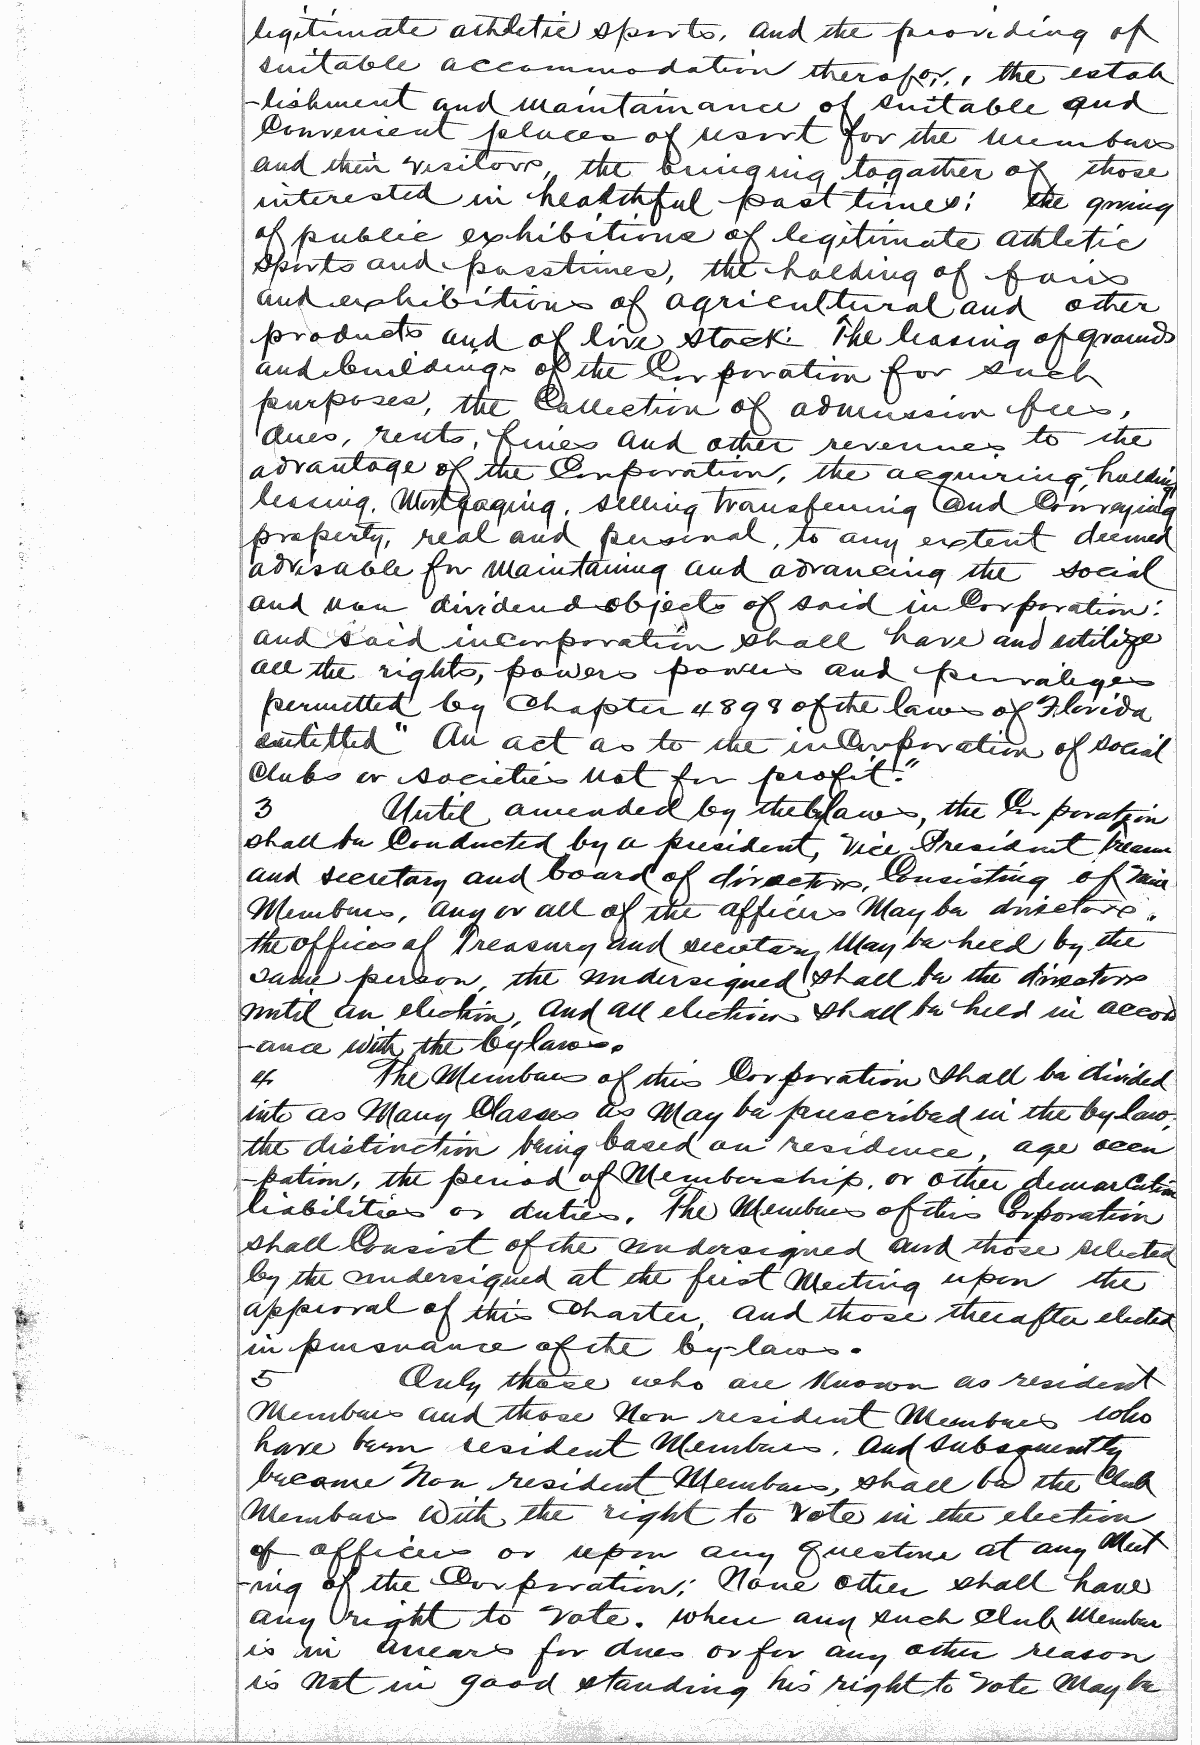 legitimate athletic sports, and the providing of
suitable accommodation therefor, the estab
-lishment and maintainance of suitable and
Convenient places of resort for the members
and their visitors, the bringing togather of those
interested in healthful past times; the giving
of public exhibitions of legitimate athletic
sports and passtimes, the holding of fairs
and exhibitions of agricultural and other
products and of live stock: The leasing of grounds
and buildings of the Corporation for such
purposes, the Collection of admission fees,
dues, rents, fines and other revenues to the
advantage of the Corporation, the acquiring, holding
leasing, Mortgaging, selling transferring and Conveying
property, real and personal, to any extent deemed
advisable for Maintaining and advancing the social
and non dividend objects of said inCorporation:
and said incorporation shall have and utilize
all the rights, powers powers and privileges
permitted by Chapter 4898 of the laws of Florida
entitled "An act as to the inCorporation of social
Clubs or societies not for profit."
3 Until amended by the bylaws, the Corporation
shall be Conducted by a president, Vice President Treasur
and secretary and board of directors, Consisting of nine
Members, any or all of the officers May be directors.
the offices of Treasury and secretary May be held by the
same person, the undersigned shall be the directors
until an election, and all elections shall be held in accord
-ance with the bylaws.
4 The Members of this Corporation shall be divided
into as Many Classes as May be prescribed in the by-laws,
the distinction being based on residence, age occu
-pation, the period of Membership, or other demarcation
liabilities or duties. The Members of this Corporation
shall Consist of the undersigned and those selected
by the undersigned at the first Meeting upon the
approval of this Charter, and those thereafter elected
in pursuance of the by-laws.
5 Only those who are known as resident
Members and those Non resident Members who
have been resident Members, and subsquently
became Non resident Members, shall be the Club
Members with the right to vote in the election
of officers or upon any questions at any Meet
-ing of the Corporation; None other shall have
any right to vote. when any such Club Member
is in arrears for dues or for any other reason
is Not in good standing his right to vote May be